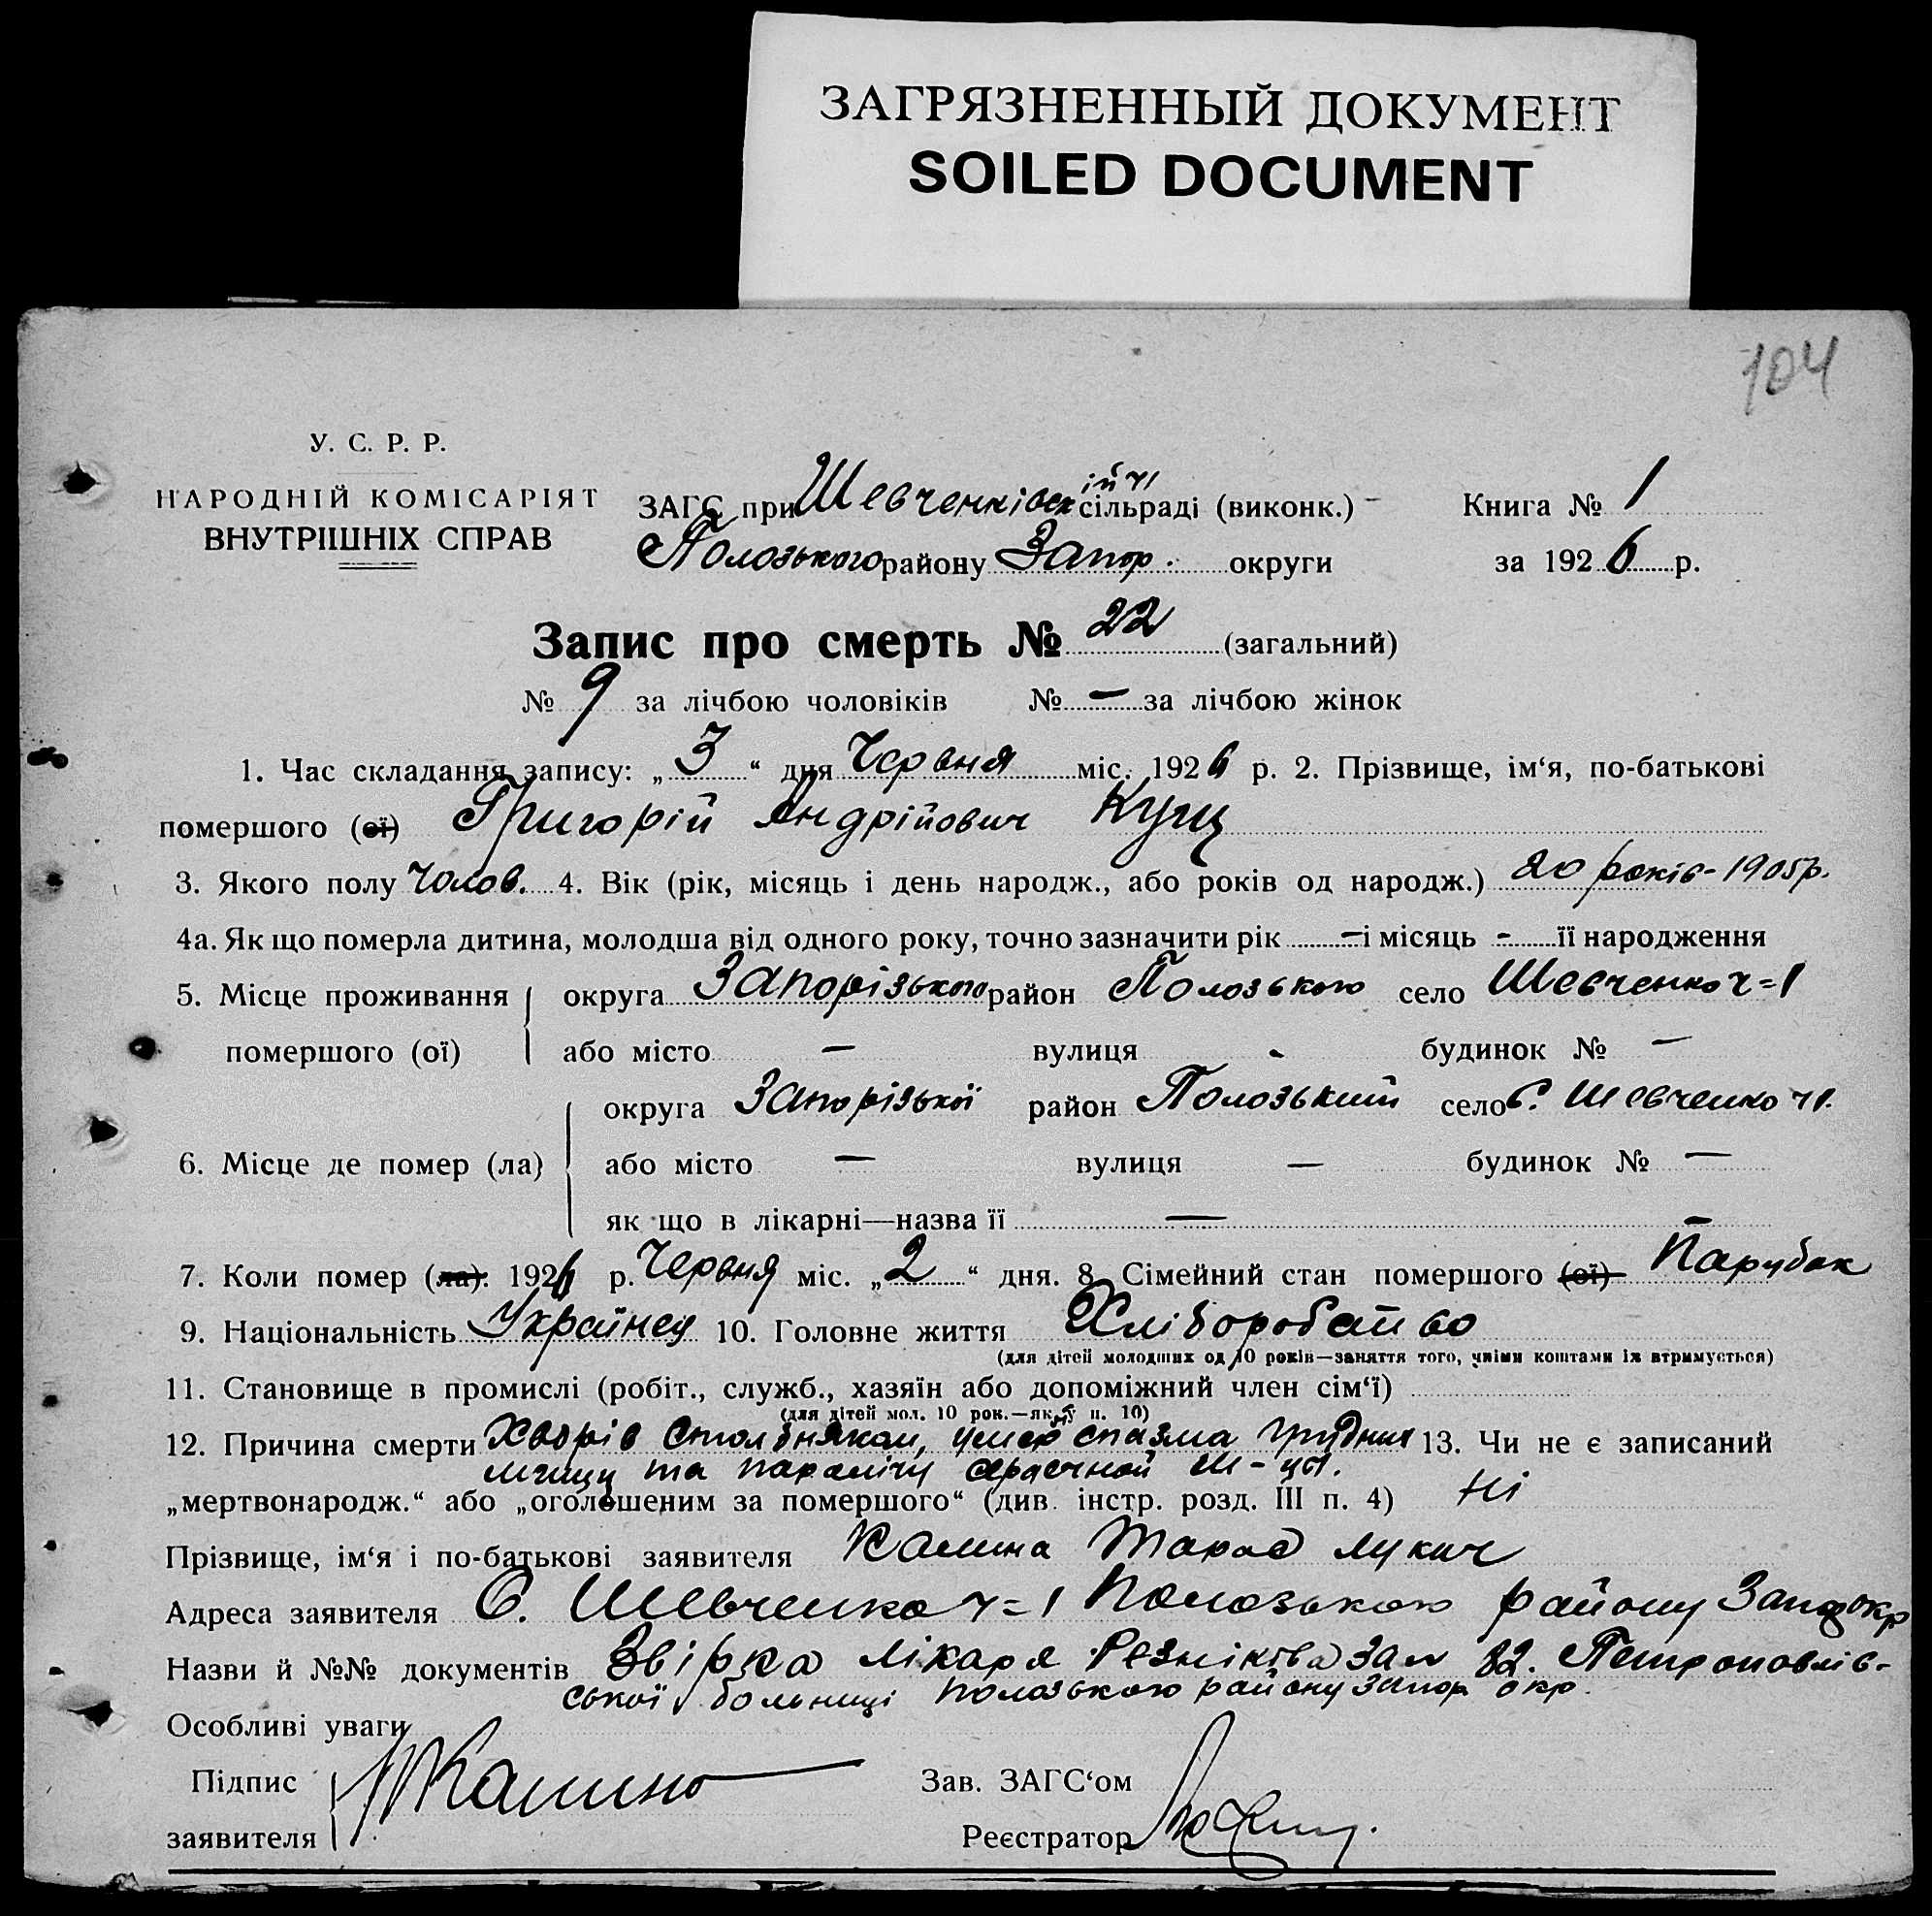 ЗАГРЯЗНЕННЫЙ ДОКУМЕНТ
SOILED DOCUMENT
104
У. С. Р. Р.
НАРОДНІЙ КОМІСАРІЯТ
ВНУТРІШНІХ СПРАВ
ЗАГС при Шевченківськ ій ч1 сільраді (виконк.)
Книга № 1
Полозького району Запор. округи
за 1926 р.
Запис про смерть № 22 (загальний)
№ 9 за лічбою чоловіків № — за лічбою жінок
1. Час складання запису: „ 3 “ дня Червня міс. 1926 р. 2. Прізвище, ім‘я, по-батькові
помершого (ої) Григорій Андрійович Кущ
3. Якого полу Чолов. 4. Вік (рік, місяць і день народж., або років од народж.) 20 років - 1905 р.
4а. Як що померла дитина, молодша від одного року, точно зазначити рік — і місяць - її народження
5. Місце проживання округа Запорізького район Полозького село Шевченко ч=1
помершого (ої) або місто — вулиця - будинок № —
округа Запорізької район Полозький село с. Шевченко ч1.
6. Місце де помер (ла) або місто — вулиця — будинок № —
як що в лікарні—назва її —
7. Коли помер (ла). 1926 р. Червня міс. „ 2 “ дня. 8. Сімейний стан помершого (ої) Парубок
9. Національність Українец 10. Головне життя Хліборобство
(для дітей молодших од 10 років—заняття того, чиїми коштами їх втримується)
11. Становище в промислі (робіт., служб., хазяїн або допоміжний член сім‘ї)
(для дітей мол. 10 рок.—як у п. 10)
12. Причина смерти Хворів столбняком, умер спазма грудних 13. Чи не є записаний
мишц та паралічу сердечной м-цы.
„мертвонародж.“ або „оголошеним за помершого“ (див. інстр. розд. III п. 4) Ні
Прізвище, ім‘я і по-батькові заявителя Калина Тарас Лукич
Адреса заявителя С. Шевченко ч=1 Полозького району Запор окр
Назви й №№ документів лікаря Резнікова за № 82. Петроповлів-
ської больниці Полозького району Запор окр.
Особливі уваги
Підпис
заявителя
Калина
Зав. ЗАГС‘ом
Реєстратор